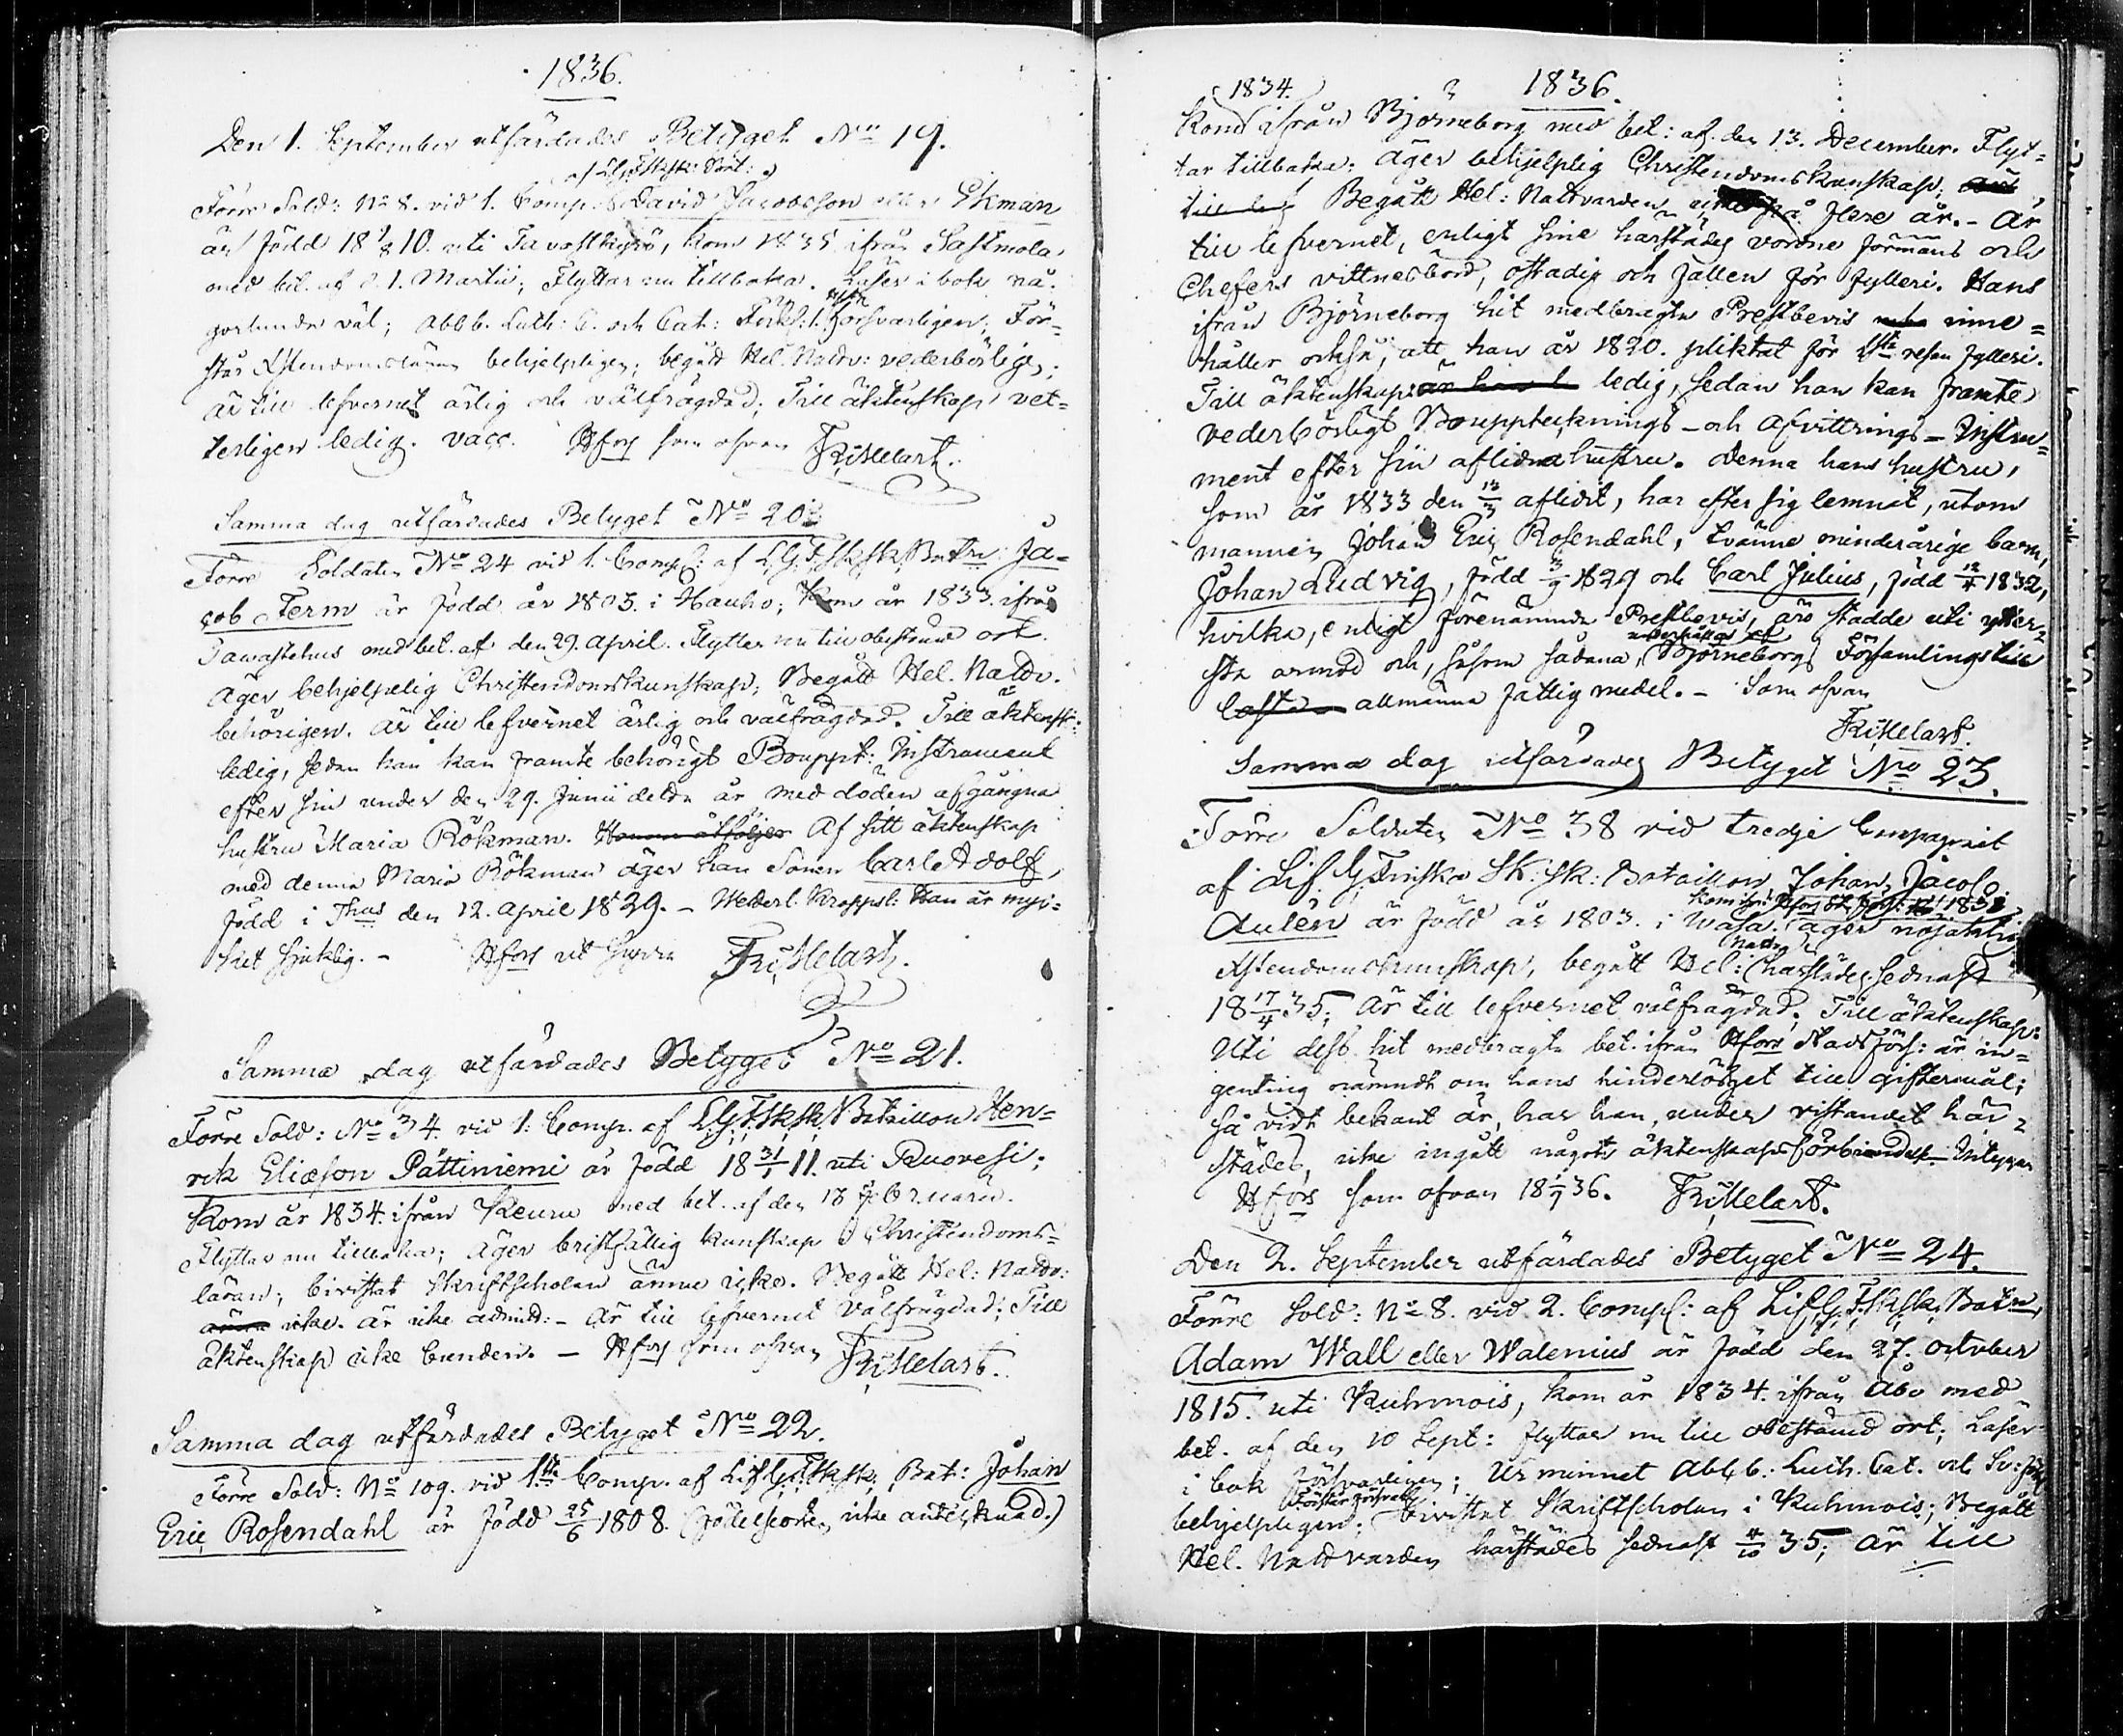 1836.
Den 1. September utfärdades Betyget No 19.
Förre Sold: No 8. vid 1. Comp. David Jacobsson eller Ekman
är född 18 10. uti Tavastkyrö, kom 1835 ifrån Sastmola
med bet. af d. 1. Martii; Flyttar nu tillbaka. Läser i bok nå-
gorlunda väl; Abb. Luth: C. och Cat: försvarligen; För-
står Xstendomsläran behjelpligen; begått Hel. Nattv: vederbörlig;
är till lefvernet ärlig och välfrägdad; Till äktenskap vet-
terligen ledig. vacc. Hfors som ofvan
Samma dag utfärdades Betyget No 20
Förre Soldaten No 24 vid 1. Comp: af L. G. F. Sk. Sk. Batn: Ja-
cob Ferm är född år 1803. i Hauho; Kom år 1833. ifrån
Tawastehus med bet. af den 29. April. Flyttar nu till obestämd ort.
Äger behjelpelig Christendomskunskap; Begått Hel. Nattv.
behörigen. Är till lefvernet ärlig och välfrägdad. Till äktensk:
ledig, sedan han kan framte behörigt Bouppt: Instrument
efter sin under den 29. Junii detta år med döden afgångna
hustru Maria Rökman. Honom åtföljer Af sitt äktenskap
med denna Maria Rökman äger han Sonen Carl Adolf,
född i Thus den 12. April 1829. - Wederl. Kroppsl: Han är myc-
ket sjuklig. - Hfors ut supra
Samma dag utfärdades Betyget No 21.
Förre Sold: No 34. vid 1. Comp. af L. G. F. Sk. Sk. Bataillon Hen-
rik Eliæson Pättiniemi är född 18 31/1 11. uti Ruovesi;
Kom år 1834. ifrån Keuru med bet. af den 18 Februarii.
Flyttar nu tillbaka; Äger bristfällig kunskap i Christendoms-
läran; bivistat Skriftscholan ännu icke. Begått Hel: Nattv:
ännu icke. är icke admitt: - Är till lefvernet Välfrägdad; Till
äktenskap icke bunden. - Hfors som ofvan
Samma dag utfärdades Betyget No 22.
Förre Sold: No 109. vid 1sta Comp. af Lif G. F. Sk. Sk. Bat: Johan
Eric Rosendahl är född 25/6 1808. (födelseorten icke antecknad.)
1836.
1834.
Kom ifrån Björneborg med bet: af den 13. December. Flyt-
tar tillbaka: äger behjelplig Christendomskunskap.
Begått Hel: Nattvarden icke på flere år. - Är
till lefvernet, enligt sine härstädes vordne Förmäns och
Chefers vittnesbörd, ostadig och fallen för fylleri. Hans
ifrån Björneborg hit medbragte Prestbevis inne-
håller också, att han år 1820. pliktat för 1sta resan fylleri.
Till äktenskap ledig, sedan han kan framte
vederbörligt Bouppteknings- och Afvittrings-Instru-
ment efter sin aflidna hustru. Denna hans hustru,
som år 1833 den aflidit, har efter sig lemnat, utom
mannen Johan Eric Rosendahl, tvänne minderårige barn,
Johan Ludvig, född 1829 och Carl Julius, född 1832,
hvilka, enligt förenämnde Prestbevis, äro stadde uti ytter-
sta armod och, såsom sådana, underhållas af Björneborgs Församlings
allmänna fattig medel. - Som ofvan
Samma dag utfärdades Betyget No 23.
Förre Soldaten No 38 vid tredje Compagniet
af Lif. G. Finska Sk: Sk: Bataillon Johan Jacob
Aulén är född år 1803. i Wasa. äger nöjaktig
Xstendomskunskap, begått Hel: Nattv härstädes sednast
18 17/4 35; Är till lefvernet välfrägdad; Till äktenskap:
Uti dess hit medbragte bet. ifrån Hfors Stads förs: är in-
genting nämndt om hans hinderlöshet till giftermål;
så vidt bekant är, har han, under vistandet här-
städes, icke ingått någott äktenskapsförbindelse. Intygar
Hfors som ofvan 18 1/9 36.
Den 2. September utfärdades Betyget No 24.
Förre Sold: No 8. vid 2. Comp: af Lif G. F. Sk. Sk. Batn,
Adam Wall eller Walenius är född den 27. october
1815. uti Kuhmois, kom år 1834. ifrån Åbo med
bet. af den 10 Sept: flyttar nu till obestämd ort; Läser
i bok försvarligen; Ur minnet Abb: Luth. Cat. och
behjelpligen; bivistat Skriftscholan i Kuhmois; Begått
Hel. Nattvarden härstädes sednast 4/10 35; är till